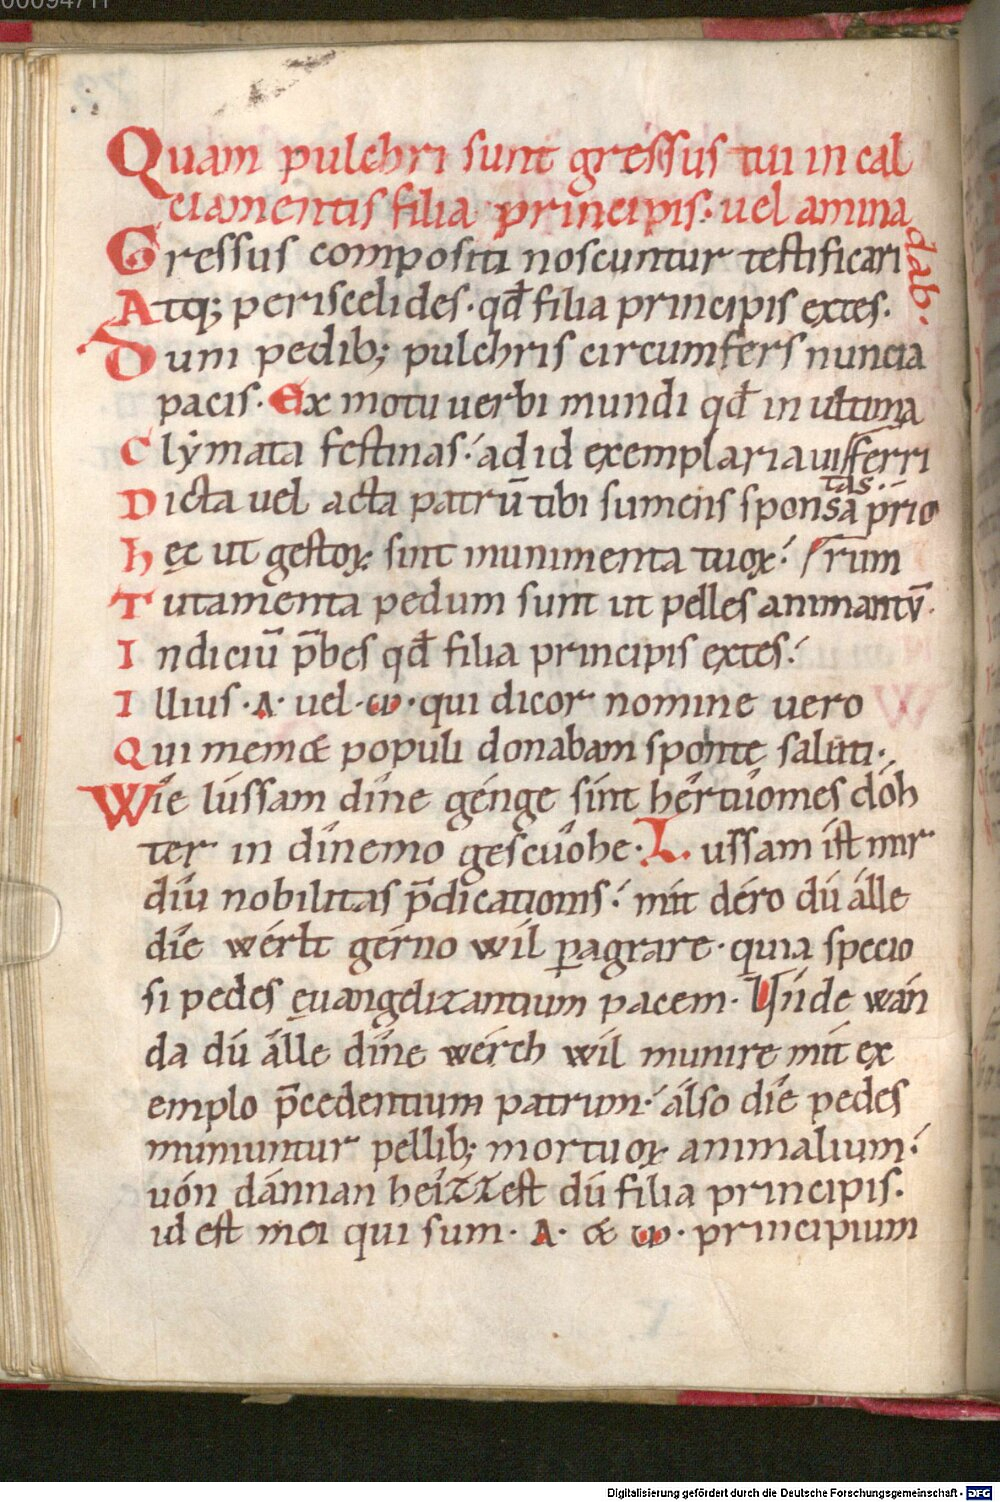 00094711
Quam pulchri sunt gressus tui in cal
ciamentis filia principis· uel amina
dab·
Gressus compositi noscuntur testificari
Atq; periscelides· qđ filia principis extes·
Dum pedib; pulchris circumfers nuncia
pacis· Ex motu uerbi mundi qđ in ultima
Clymata festinas·́ ad id exemplaria uis ferri
tas·
Dicta uel acta patrū tibi sumens sponsa p̄rio
hęc ut gestoꝝ sint munimenta tuoꝝ·́ rum
Tutamenta pedum sunt ut pelles animantū·
Indiciū p̄bes qđ filia principis extes·́
Illius· A· uel· ω· qui dicor nomine uero
Qui memet populi donabam sponte saluti·
Wíe lússam díne génge sínt hértûomes dóh
ter in dínemo gescûohe· Lussam íst mír
díu nobilitas p̄dicationis·́ mít déro dú álle
díe wérlt gérno wíl ꝑagrare· quia specio
si pedes ęuangelizantium pacem· Únde wán
da dú álle díne wérch wíl munire mít ex
emplo p̄cedentium patrum·́ álso díe pedes
muniuntur pellib; mortuoꝝ animalium·́
uón dánnan heízzest dú filia principis·
id est mei qui sum· A· & ω· principium
Digitalisierung gefördert durch die Deutsche Forschungsgemeinschaft - DFG